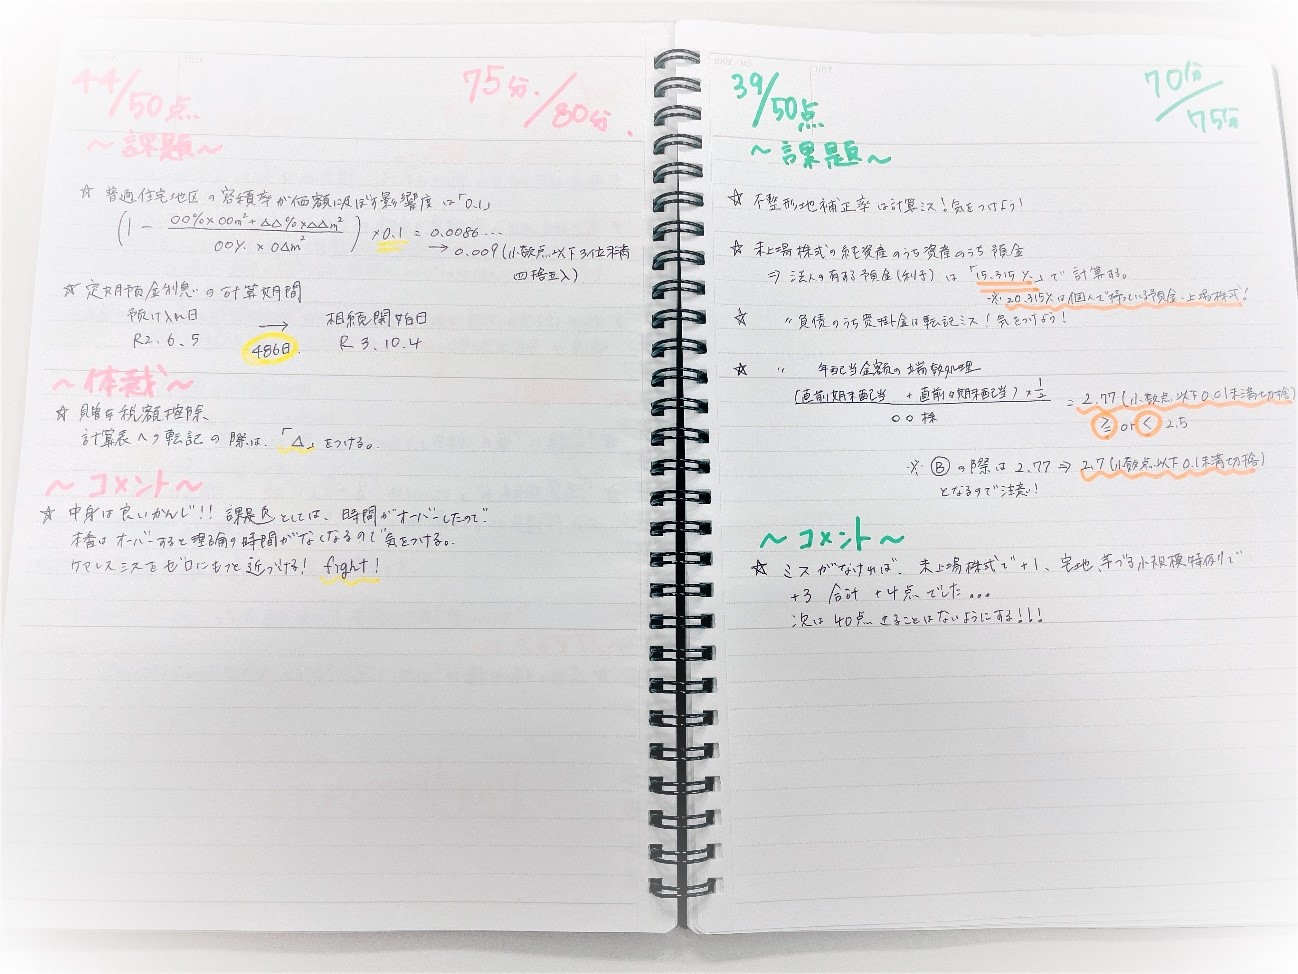 44/50点
75分/80分.
〜課題〜
☆ 普通住宅地区の容積率が価額に及ぼす影響度は「0.1」
(1 - 00%×00m²+△△%×△△m² / 00%×0△m²) ×0.1 = 0.0086...
→ 0.009(小数点以下3位未満
四捨五入)
☆ 定期預金利息の計算期間
預け入れ日 → 相続開始日
R2.6.5 486日. R3.10.4
〜体裁〜
☆ 贈与税額控除
計算表へ転記の際は、「△」をつける。
〜コメント〜
☆ 中身は良いかんじ!! 課題点としては、時間がオーバーしたので
本番はオーバーすると理論の時間がなくなるので気をつける。
ケアレスミスをゼロにもっと近づける! fight!
39/50点
70分/75分
〜課題〜
☆ 不整形地補正率は計算ミス!気をつけよう!
☆ 未上場株式の純資産のうち資産のうち預金
⇒ 法人の有する預金(利子)は「15.315%」で計算する。
※ 20.315%は個人で持っている預金・上場株式!
☆ 〃 負債のうち買掛金は転記ミス!気をつけよう!
☆ 〃 年配当金額の端数処理
(直前期末配当 + 直前々期末配当)×1/2 / 00株 = 2.77(小数点以下0.01未満切捨)
≧ or < 2.5
※ Ⓑの際は2.77 ⇒ 2.7(小数点以下0.1未満切捨)
となるので注意!
〜コメント〜
☆ ミスがなければ、未上場株式で+1、宅地、芋づる小規模特例で
+3 合計 +4点でした...
次は40点きることはないようにする!!!